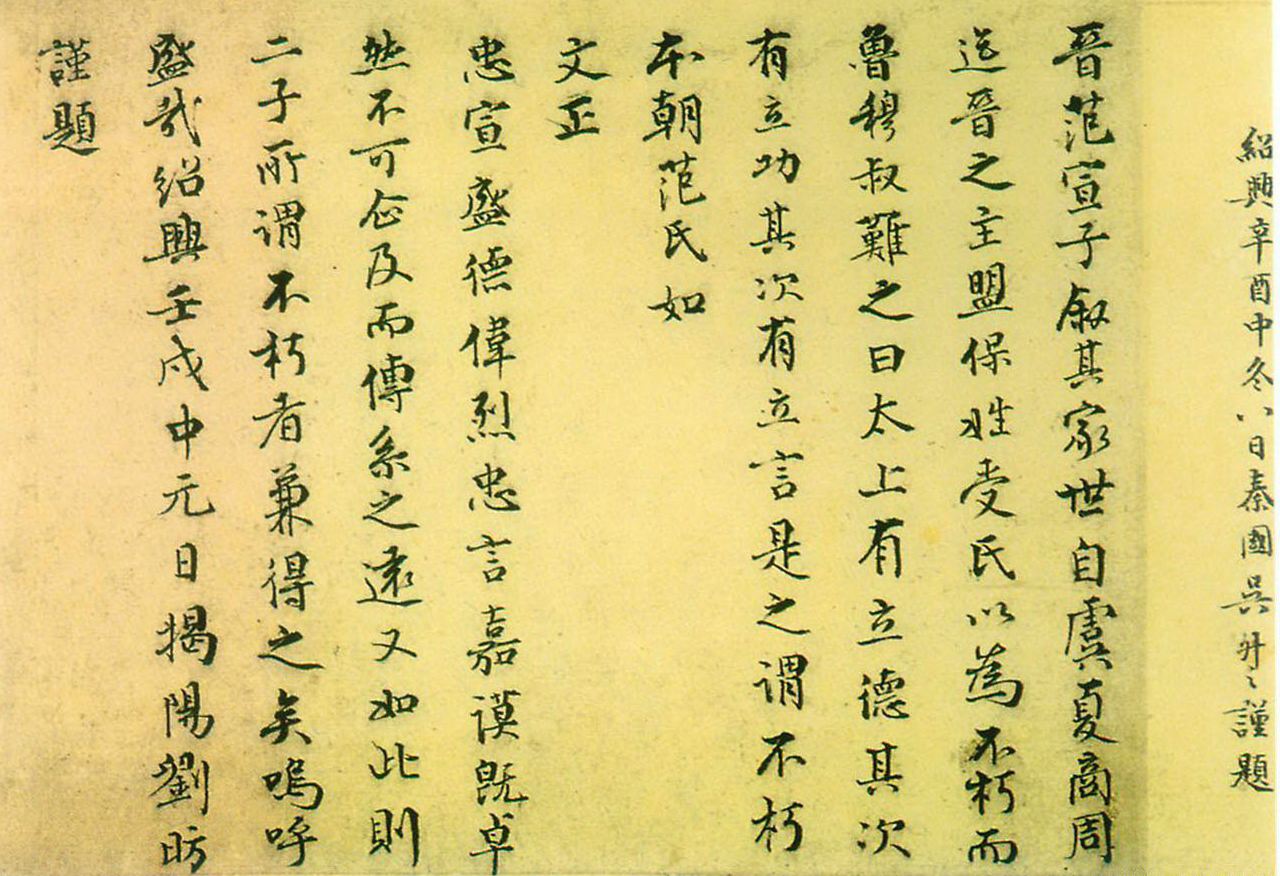 紹興辛酉中冬八日秦國吳升謹題
晉范宣子叙其家世自虞夏商周
迄晉之主盟保姓受氏以為不朽而
魯穆叔難之曰太上有立德其次
有立功其次有立言是之謂不朽
本朝范氏如
文正
忠宣盛德偉烈忠言嘉謨旣卓
然不可企及而傳系之遠又如此則
二子所謂不朽者兼得之矣嗚呼
盛哉紹興壬戌中元日揭陽劉昉
謹題